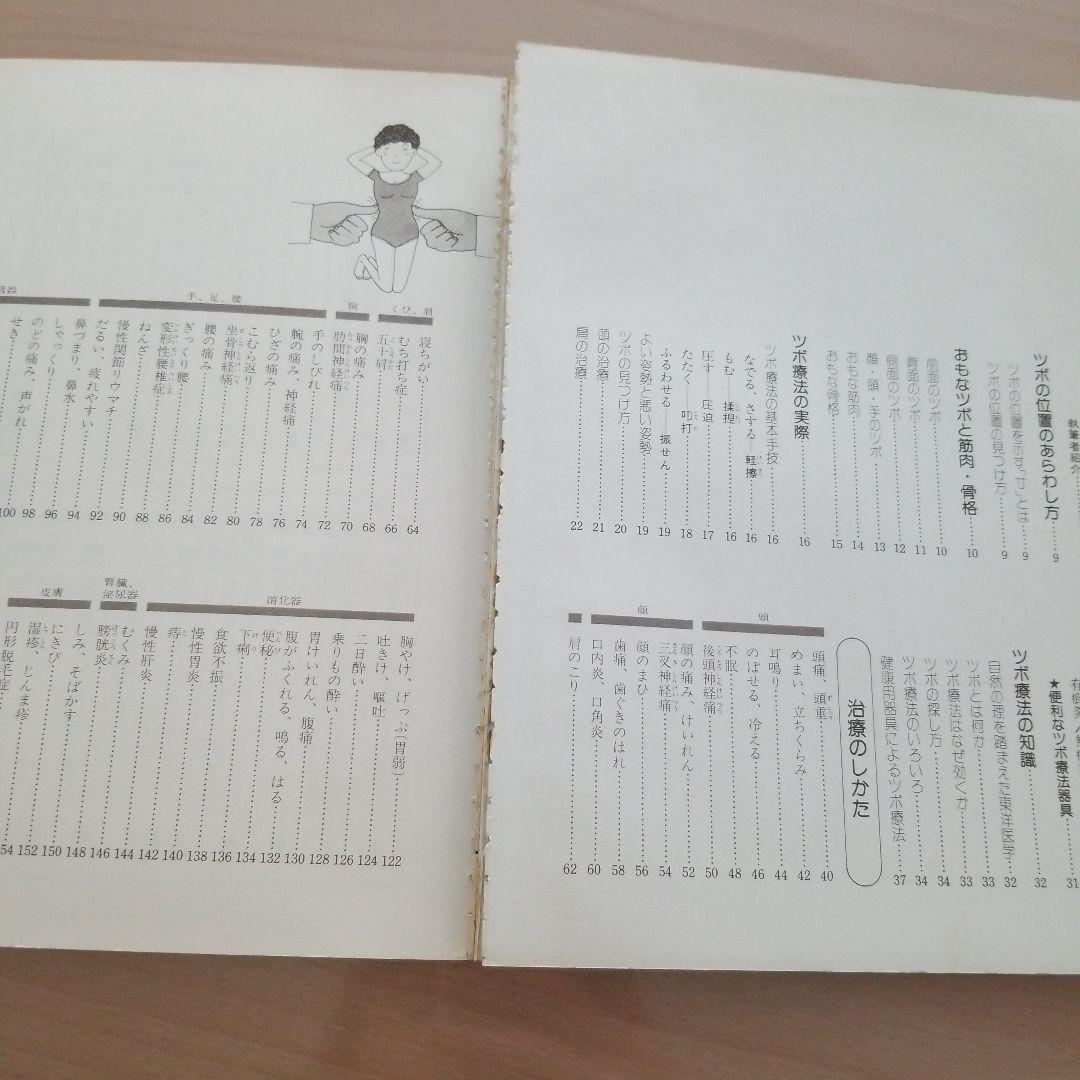 執筆者紹介
ツボの位置のあらわし方……9
ツボの位置を示す「寸」とは……9
ツボの位置の見つけ方……9
おもなツボと筋肉・骨格……10
前面のツボ……10
背面のツボ……11
側面のツボ……12
顔・頭・手のツボ……13
おもな筋肉……14
おもな骨格……15
ツボ療法の実際……16
ツボ療法の基本手技……16
なでる、さする──軽擦……16
もむ──揉捏……16
圧す──圧迫……17
たたく──叩打……18
ふるわせる──振せん……19
よい姿勢と悪い姿勢……19
ツボの見つけ方……20
頭の治療……21
肩の治療……22
★便利なツボ療法器具……31
ツボ療法の知識……32
自然の理を踏まえた東洋医学……32
ツボとは何か……33
ツボ療法はなぜ効くか……33
ツボの探し方……34
ツボ療法のいろいろ……34
健康用器具によるツボ療法……37
治療のしかた
頭
頭痛、頭重……40
めまい、立ちくらみ……42
耳鳴り……44
のぼせる、冷える……46
不眠……48
後頭神経痛……50
顔
顔の痛み、けいれん……52
三叉神経痛……54
顔のまひ……56
歯痛、歯ぐきのはれ……58
口内炎、口角炎……60
肩のこり……62
くび、肩
寝ちがい……64
むち打ち症……66
五十肩……68
胸
胸の痛み……70
肋間神経痛
手、足、腰
手のしびれ……72
腕の痛み、神経痛……74
ひざの痛み……76
こむら返り……78
坐骨神経痛……80
腰の痛み……82
ぎっくり腰……84
変形性腰椎症……86
ねんざ……88
慢性関節リウマチ……90
だるい、疲れやすい……92
鼻づまり、鼻水……94
しゃっくり……96
のどの痛み、声がれ……98
せき……100
消化器
胸やけ、げっぷ(胃弱)……122
吐きけ、嘔吐……124
二日酔い……126
乗りもの酔い……128
胃けいれん、腹痛……130
腹がふくれる、鳴る、はる……132
便秘……134
下痢……136
食欲不振……138
慢性胃炎……140
痔……142
慢性肝炎
腎臓、泌尿器
むくみ……144
膀胱炎……146
皮膚
しみ、そばかす……148
にきび……150
湿疹、じんま疹……152
円形脱毛症